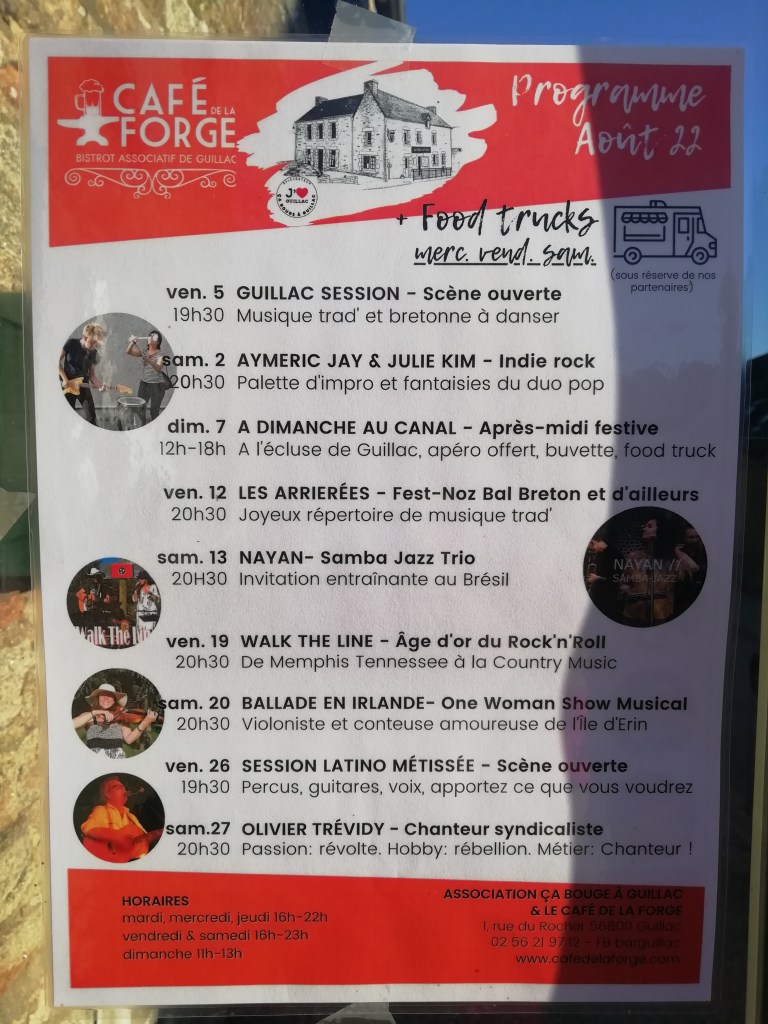 CAFÉ
DE LA
FORGE
BISTROT ASSOCIATIF DE GUILLAC
J'❤
GUILLAC
ÇA BOUGE À GUILLAC
Programme
Août 22
+ Food trucks
merc. vend. sam.
(sous réserve de nos
partenaires)
ven. 5 GUILLAC SESSION - Scène ouverte
19h30 Musique trad' et bretonne à danser
sam. 2 AYMERIC JAY & JULIE KIM - Indie rock
20h30 Palette d'impro et fantaisies du duo pop
dim. 7 A DIMANCHE AU CANAL - Après-midi festive
12h-18h A l'écluse de Guillac, apéro offert, buvette, food truck
ven. 12 LES ARRIERÉES - Fest-Noz Bal Breton et d'ailleurs
20h30 Joyeux répertoire de musique trad'
sam. 13 NAYAN- Samba Jazz Trio
20H30 Invitation entraînante au Brésil
NAYAN //
SAMBA-JAZZ
Walk The Line
ven. 19 WALK THE LINE - Âge d'or du Rock'n'Roll
20h30 De Memphis Tennessee à la Country Music
sam. 20 BALLADE EN IRLANDE- One Woman Show Musical
20h30 Violoniste et conteuse amoureuse de l'Île d'Erin
ven. 26 SESSION LATINO MÉTISSÉE - Scène ouverte
19h30 Percus, guitares, voix, apportez ce que vous voudrez
sam.27 OLIVIER TRÉVIDY - Chanteur syndicaliste
20h30 Passion: révolte. Hobby: rébellion. Métier: Chanteur !
HORAIRES
mardi, mercredi, jeudi 16h-22h
vendredi & samedi 16h-23h
dimanche 11h-13h
ASSOCIATION ÇA BOUGE À GUILLAC
& LE CAFÉ DE LA FORGE
1, rue du Rocher 56800 Guillac
02 56 21 97 12 - FB barguillac
www.cafedelaforge.com